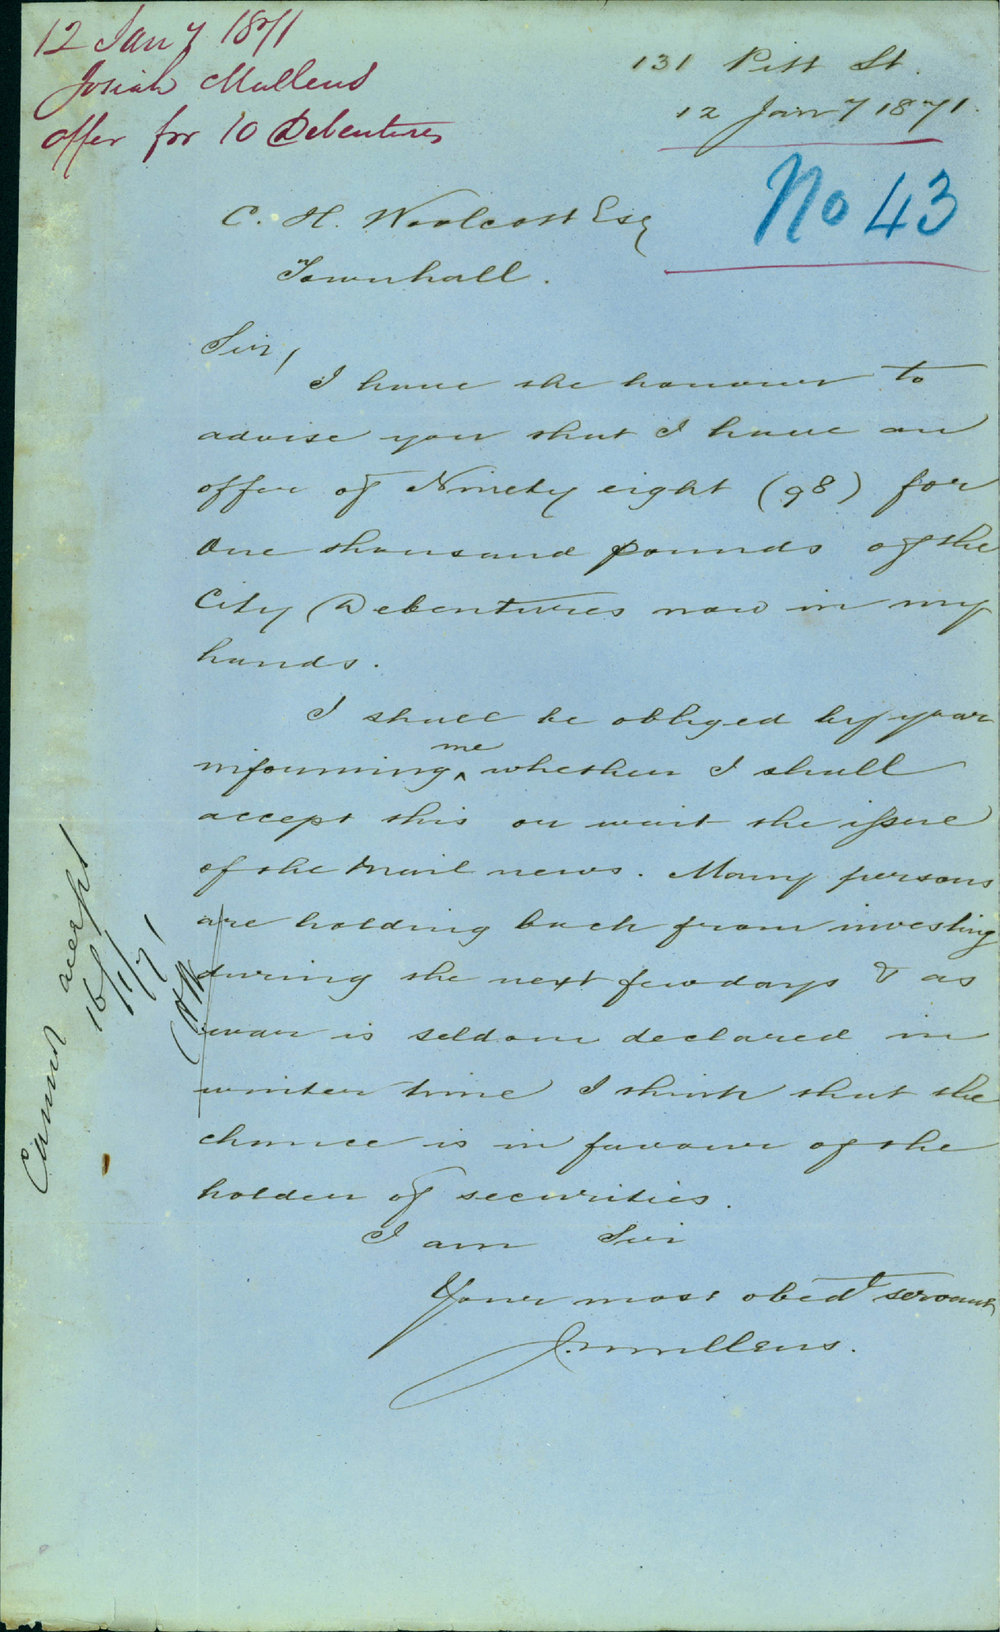 12 Jany 1871
Josiah Mullens
offer for 10 Debentures
131 Pitt St.
12 Jany 1871.
No 43
C. H. Woolcott Esq
Townhall.
Sir,
I have the honour to
advise you that I have an
offer of Ninety eight (98) for
One thousand pounds of the
City Debentures now in my
hands.
I shall be obliged by your
informing me whether I shall
accept this or wait the issue
of the Mail news. Many persons
are holding back from investing
during the next few days & as
war is seldom declared in
winter time I think that the
chance is in favour of the
holder of securities.
I am Sir
Your most obedt servant
J. Mullens.
Cannot accept
16/1/71
CHW